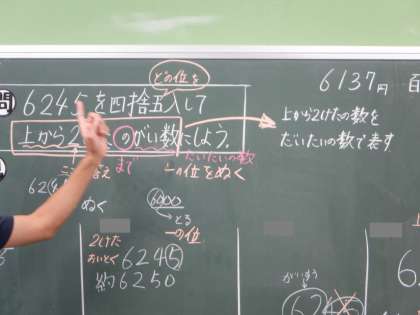 どの位を
問
6245を四捨五入して
6137円
上から2
のがい数にしよう。
上から2けたの数を
だいたいの数で表す
まで
だいたいの数
一の位をぬく
ぬく
6000
とる
一の位
2けた
おいとく
6245
約6250
がいすう